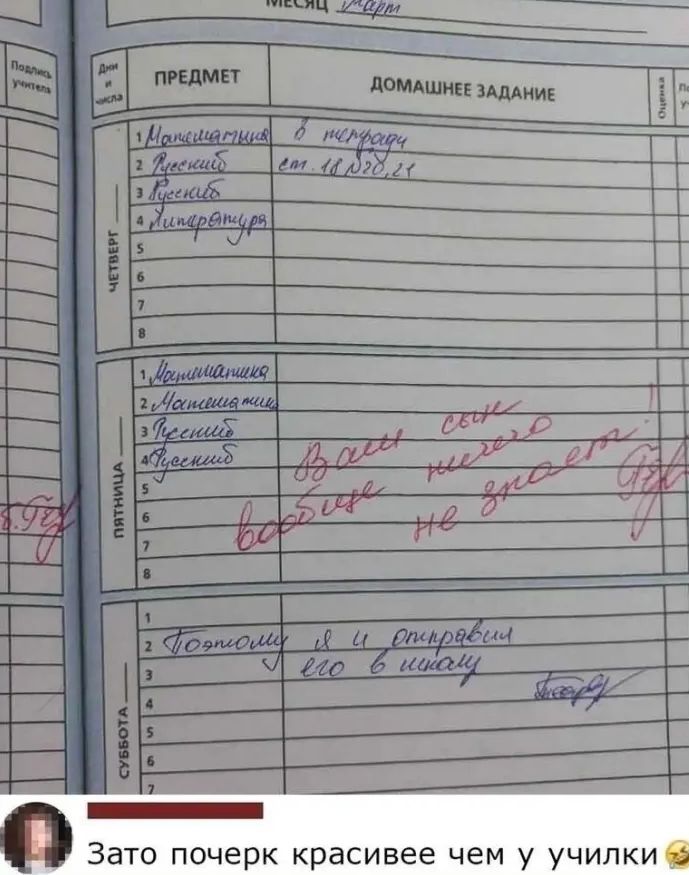 МЕСЯЦ Март
Подпись учителя
Дни и числа
ПРЕДМЕТ
ДОМАШНЕЕ ЗАДАНИЕ
Оценка
ЧЕТВЕРГ
1 Математика в тетради
2 Русский ст. 18 №20,21
3 Русский
4 Литература
5
6
7
8
ПЯТНИЦА
1 Математика
2 Математика
3 Русский
4 Русский
5
6
7
8
Ваш сын
вообще ничего
не знает!
СУББОТА
1
2 Поэтому я и отправил
3 его в школу
4
5
6
7
Зато почерк красивее чем у училки🤣